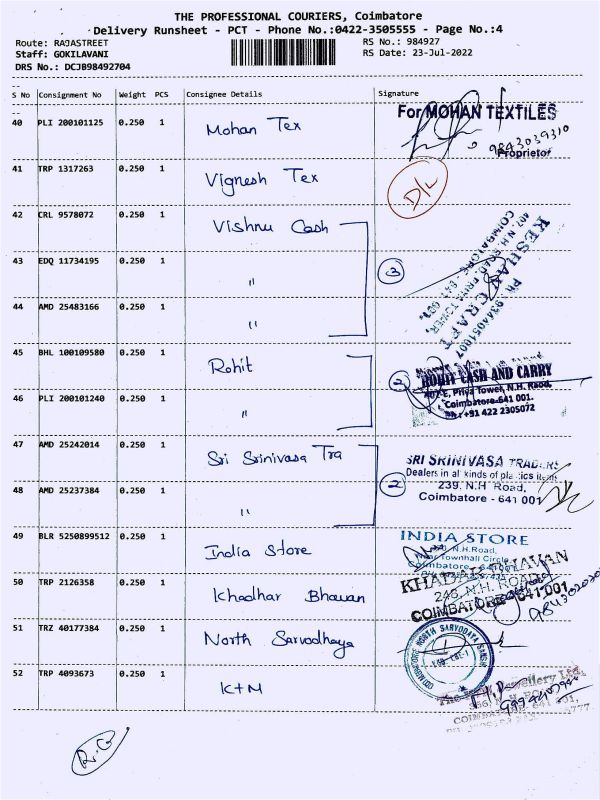 THE PROFESSIONAL COURIERS, Coimbatore
Delivery Runsheet - PCT - Phone No.:0422-3505555 - Page No.:4
Route: RAJASTREET
RS No.: 984927
Staff: GOKILAVANI
RS Date: 23-Jul-2022
DRS No.: DCJB98492704
S No Consignment No Weight PCS Consignee Details Signature
40 PLI 200101125 0.250 1 Mohan Tex
For MOHAN TEXTILES
9843039310
Proprietor
41 TRP 1317263 0.250 1 Vignesh Tex D/L
42 CRL 9578072 0.250 1 Vishnu Cash
43 EDQ 11734195 0.250 1 " 3
KESHAV CRAFT
COIMBATORE - 641 001.
44 AMD 25483166 0.250 1 "
45 BHL 100109580 0.250 1 Rohit
2
ROHIT CASH AND CARRY
402-E, Priya Tower, N.H. Road,
Coimbatore-641 001.
Ph: +91 422 2305072
46 PLI 200101240 0.250 1 "
47 AMD 25242014 0.250 1 Sri Srinivasa Tra
2
SRI SRINIVASA TRADERS
Dealers in all kinds of plastics items
239, N.H. Road,
Coimbatore - 641 001
48 AMD 25237384 0.250 1 "
49 BLR 5250899512 0.250 1 India Store
INDIA STORE
N.H.Road,
Near Townhall Circle,
Coimbatore
50 TRP 2126358 0.250 1 Khadhar Bhavan
KHADAR BHAVAN
246, N.H. ROAD
COIMBATORE-641 001
51 TRZ 40177384 0.250 1 North Sarvodhaya
COIMBATORE NORTH SARVODAYA SANGH
52 TRP 4093673 0.250 1 KTM
Jewellery Ltd.
R.G